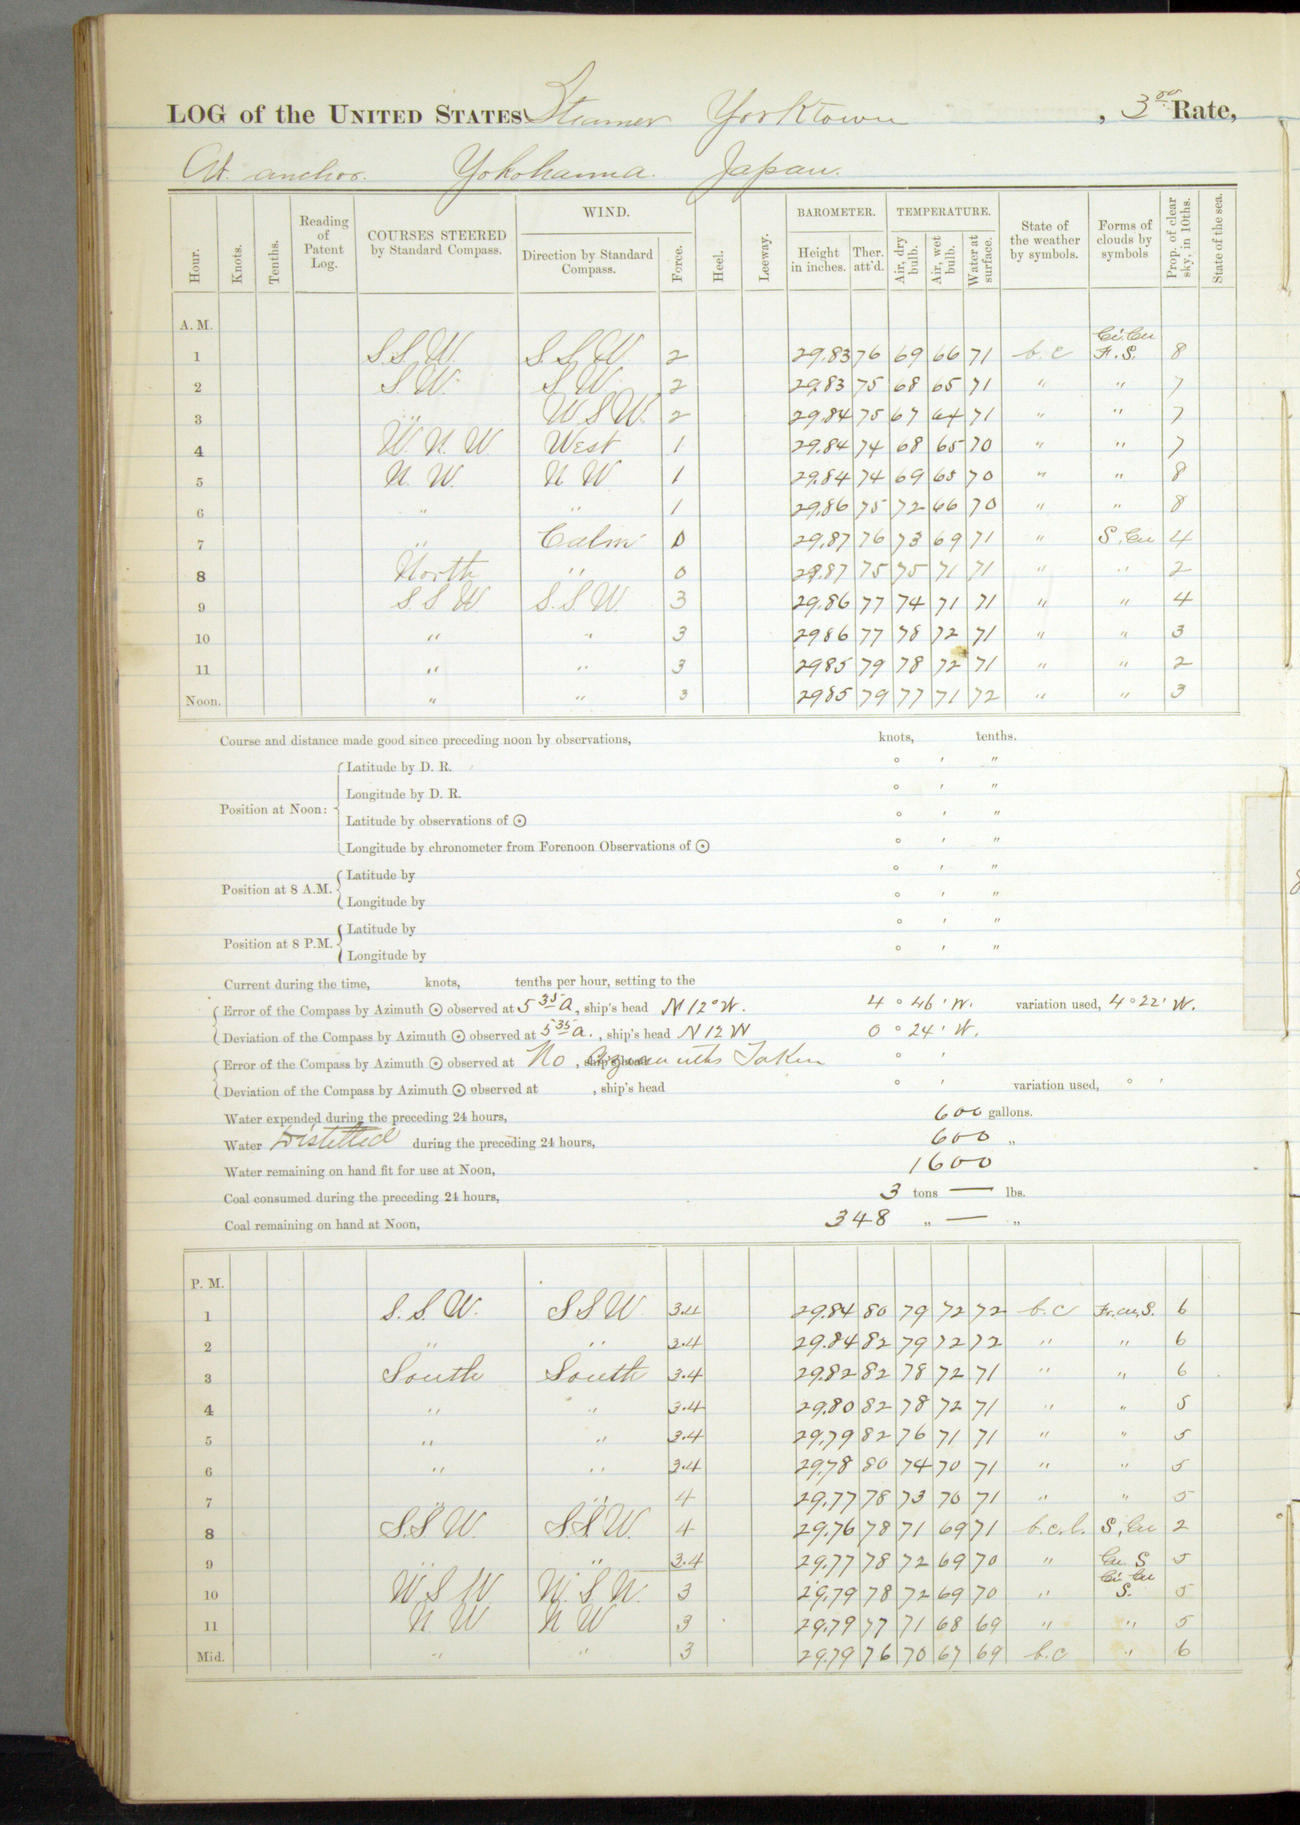 LOG of the UNITED STATES Steamer Yorktown, 3rd Rate,
At anchor. Yokohama. Japan.
Hour. Knots. Tenths. Reading of Patent Log. COURSES STEERED by Standard Compass. WIND. Direction by Standard Compass. Force. Heel. Leeway. BAROMETER. Height in inches. Ther. att'd. TEMPERATURE. Air, dry bulb. Air, wet bulb. Water at surface. State of the weather by symbols. Forms of clouds by symbols Prop. of clear sky, in 10ths. State of the sea.
A. M.
1 S.S.W. S.S.W. 2 29.83 76 69 66 71 b.c Ci.Cu Fr. S. 8
2 S.W. S.W. 2 29.83 75 68 65 71 " " 7
3 " W.S.W. 2 29.84 75 67 64 71 " " 7
4 W.N.W West 1 29.84 74 68 65 70 " " 7
5 N.W. N W 1 29.84 74 69 65 70 " " 8
6 " " 1 29.86 75 72 66 70 " " 8
7 " Calm 0 29.87 76 73 69 71 " S.Cu 4
8 North " 0 29.87 75 75 71 71 " " 2
9 S.S W S.S.W. 3 29.86 77 74 71 71 " " 4
10 " " 3 2986 77 78 72 71 " " 3
11 " " 3 2985 79 78 72 71 " " 2
Noon. " " 3 2985 79 77 71 72 " " 3
Course and distance made good since preceding noon by observations, knots, tenths.
Position at Noon:
Latitude by D. R. ° ' "
Longitude by D. R. ° ' "
Latitude by observations of ☉ ° ' "
Longitude by chronometer from Forenoon Observations of ☉ ° ' "
Position at 8 A.M.
Latitude by ° ' "
Longitude by ° ' "
Position at 8 P.M.
Latitude by ° ' "
Longitude by ° ' "
Current during the time, knots, tenths per hour, setting to the
Error of the Compass by Azimuth ☉ observed at 5 35 A, ship's head N 12° W. 4 ° 46 ' W. variation used, 4 ° 22 ' W.
Deviation of the Compass by Azimuth ☉ observed at 5 35 a. , ship's head N 12 W 0 ° 24 ' W.
Error of the Compass by Azimuth ☉ observed at No Azimuths Taken , ship's head ° '
Deviation of the Compass by Azimuth ☉ observed at , ship's head ° ' variation used, ° '
Water expended during the preceding 24 hours, 600 gallons.
Water Distilled during the preceding 24 hours, 600 "
Water remaining on hand fit for use at Noon, 1600
Coal consumed during the preceding 24 hours, 3 tons — lbs.
Coal remaining on hand at Noon, 348 " — "
P. M.
1 S.S.W. S S W. 3.4 29.84 80 79 72 72 b.c Fr.cu,S. 6
2 " " 3.4 29.84 82 79 72 72 " " 6
3 South South 3.4 29.82 82 78 72 71 " " 6
4 " " 3.4 29.80 82 78 72 71 " " 5
5 " " 3.4 29.79 82 76 71 71 " " 5
6 " " 3.4 29.78 80 74 70 71 " " 5
7 " " 4 29.77 78 73 70 71 " " 5
8 S.S W. S.S.W. 4 29.76 78 71 69 71 b.c.l. S,Cu 2
9 " " 3.4 29.77 78 72 69 70 " Cu. S 5
10 W S W W.S.W. 3 29.79 78 72 69 70 " Ci Cu S. 5
11 N W N W 3 29.79 77 71 68 69 " " 5
Mid. " " 3 29.79 76 70 67 69 b.c " 6